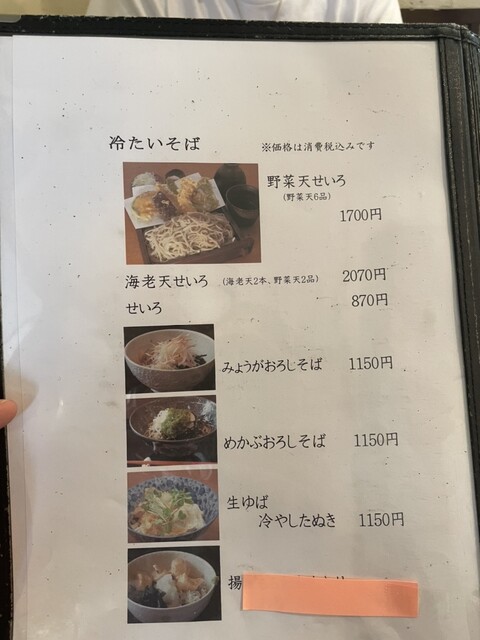 冷たいそば ※価格は消費税込みです
野菜天せいろ
(野菜天6品)
1700円
海老天せいろ (海老天2本、野菜天2品) 2070円
せいろ 870円
みょうがおろしそば 1150円
めかぶおろしそば 1150円
生ゆば
冷やしたぬき 1150円
揚